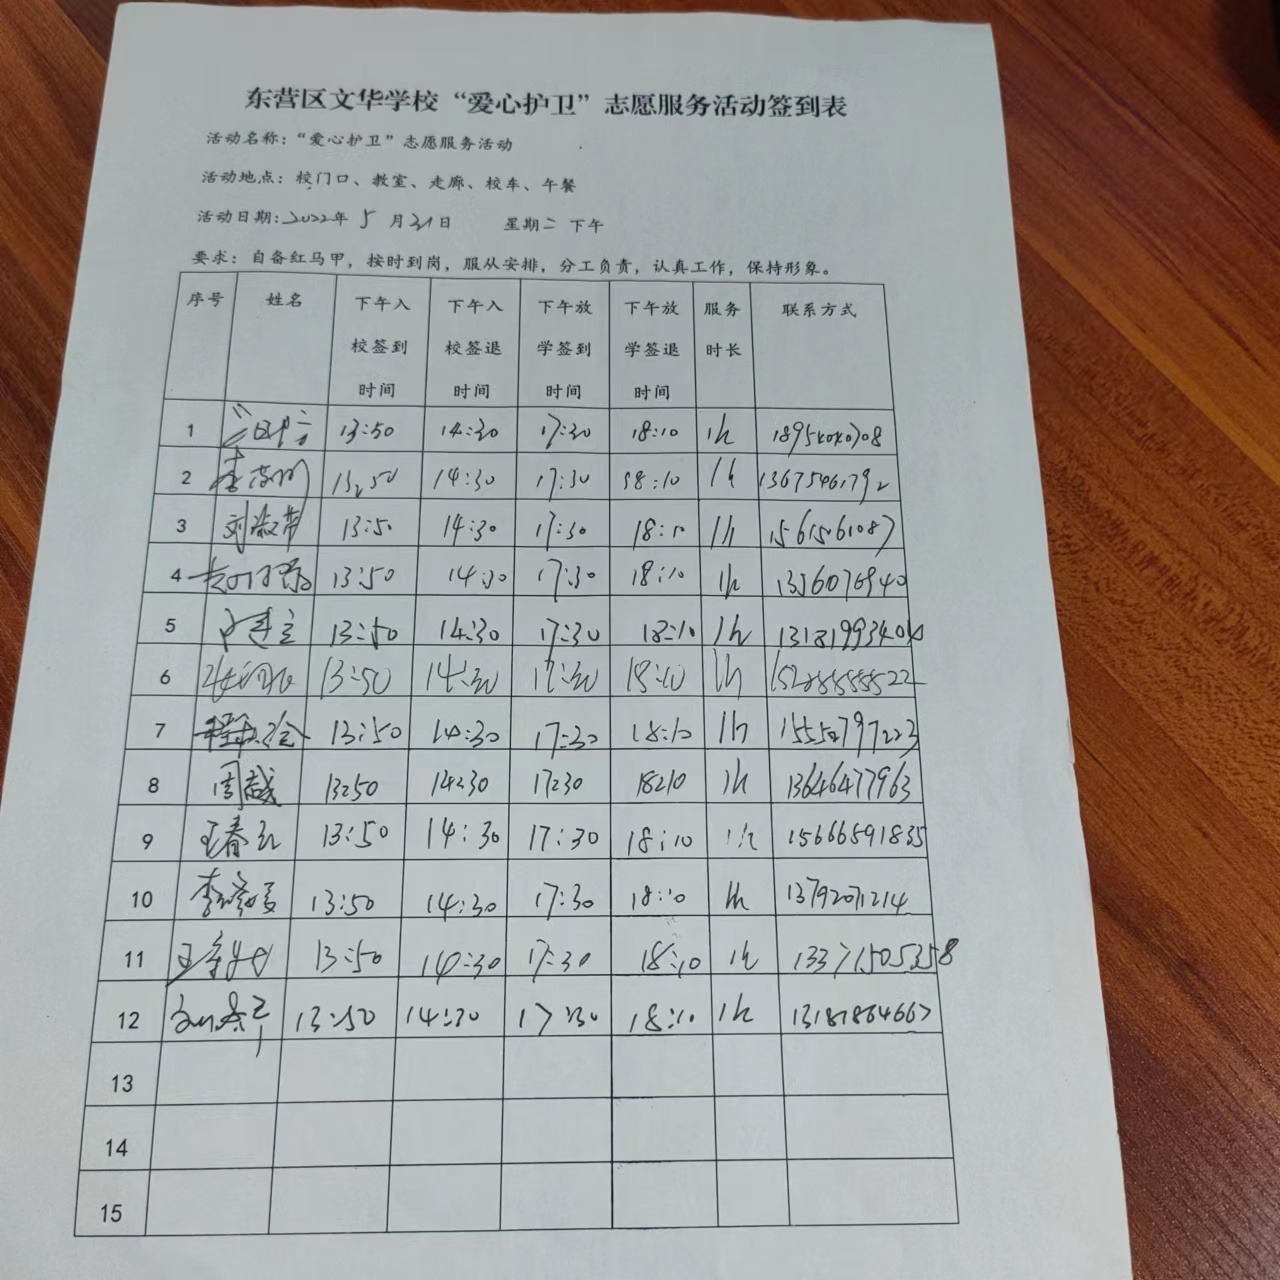 东营区文华学校“爱心护卫”志愿服务活动签到表
活动名称：“爱心护卫”志愿服务活动
活动地点：校门口、教室、走廊、校车、午餐
活动日期：2022年 5 月31日 星期二 下午
要求：自备红马甲，按时到岗，服从安排，分工负责，认真工作，保持形象。
序号 姓名 下午入校签到时间 下午入校签退时间 下午放学签到时间 下午放学签退时间 服务时长 联系方式
1 13:50 14:30 17:30 18:10 1h
2 13:50 14:30 17:30 18:10 1h 13675461792
3 刘淑芹 13:50 14:30 17:30 18:10 1h
4 13:50 14:30 17:30 18:10 1h
5 13:50 14:30 17:30 18:10 1h
6 13:50 14:30 17:30 18:10 1h
7 13:50 14:30 17:30 18:10 1h
8 周越 13:50 14:30 17:30 18:10 1h 13646477963
9 王春 13:50 14:30 17:30 18:10 1h 15666591835
10 李 13:50 14:30 17:30 18:10 1h 13792071214
11 王 13:50 14:30 17:30 18:10 1h 13371505358
12 13:50 14:30 17:30 18:10 1h 13181864667
13
14
15